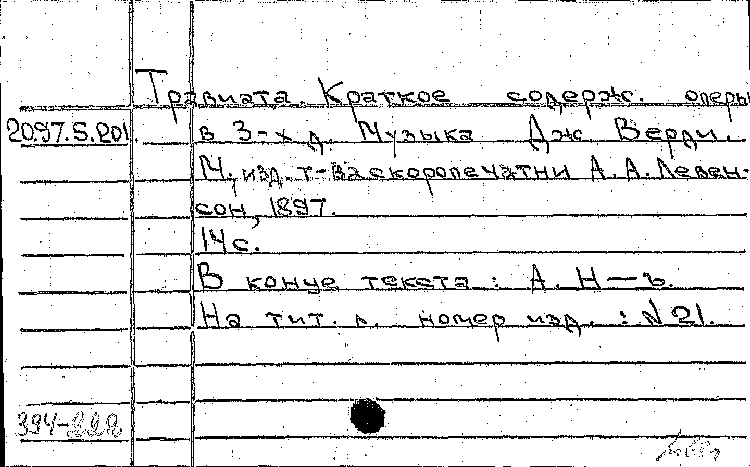 Травиата. Краткое содерж. оперы
2097.S.201. в 3-х д. Музыка Дж Верди.
М., изд. т-ва скоропечатни А. А. Левен-
сон, 1897.
14 с.
В конце текста: А. Н—ъ.
На тит. л. номер изд.: N 21.
394-